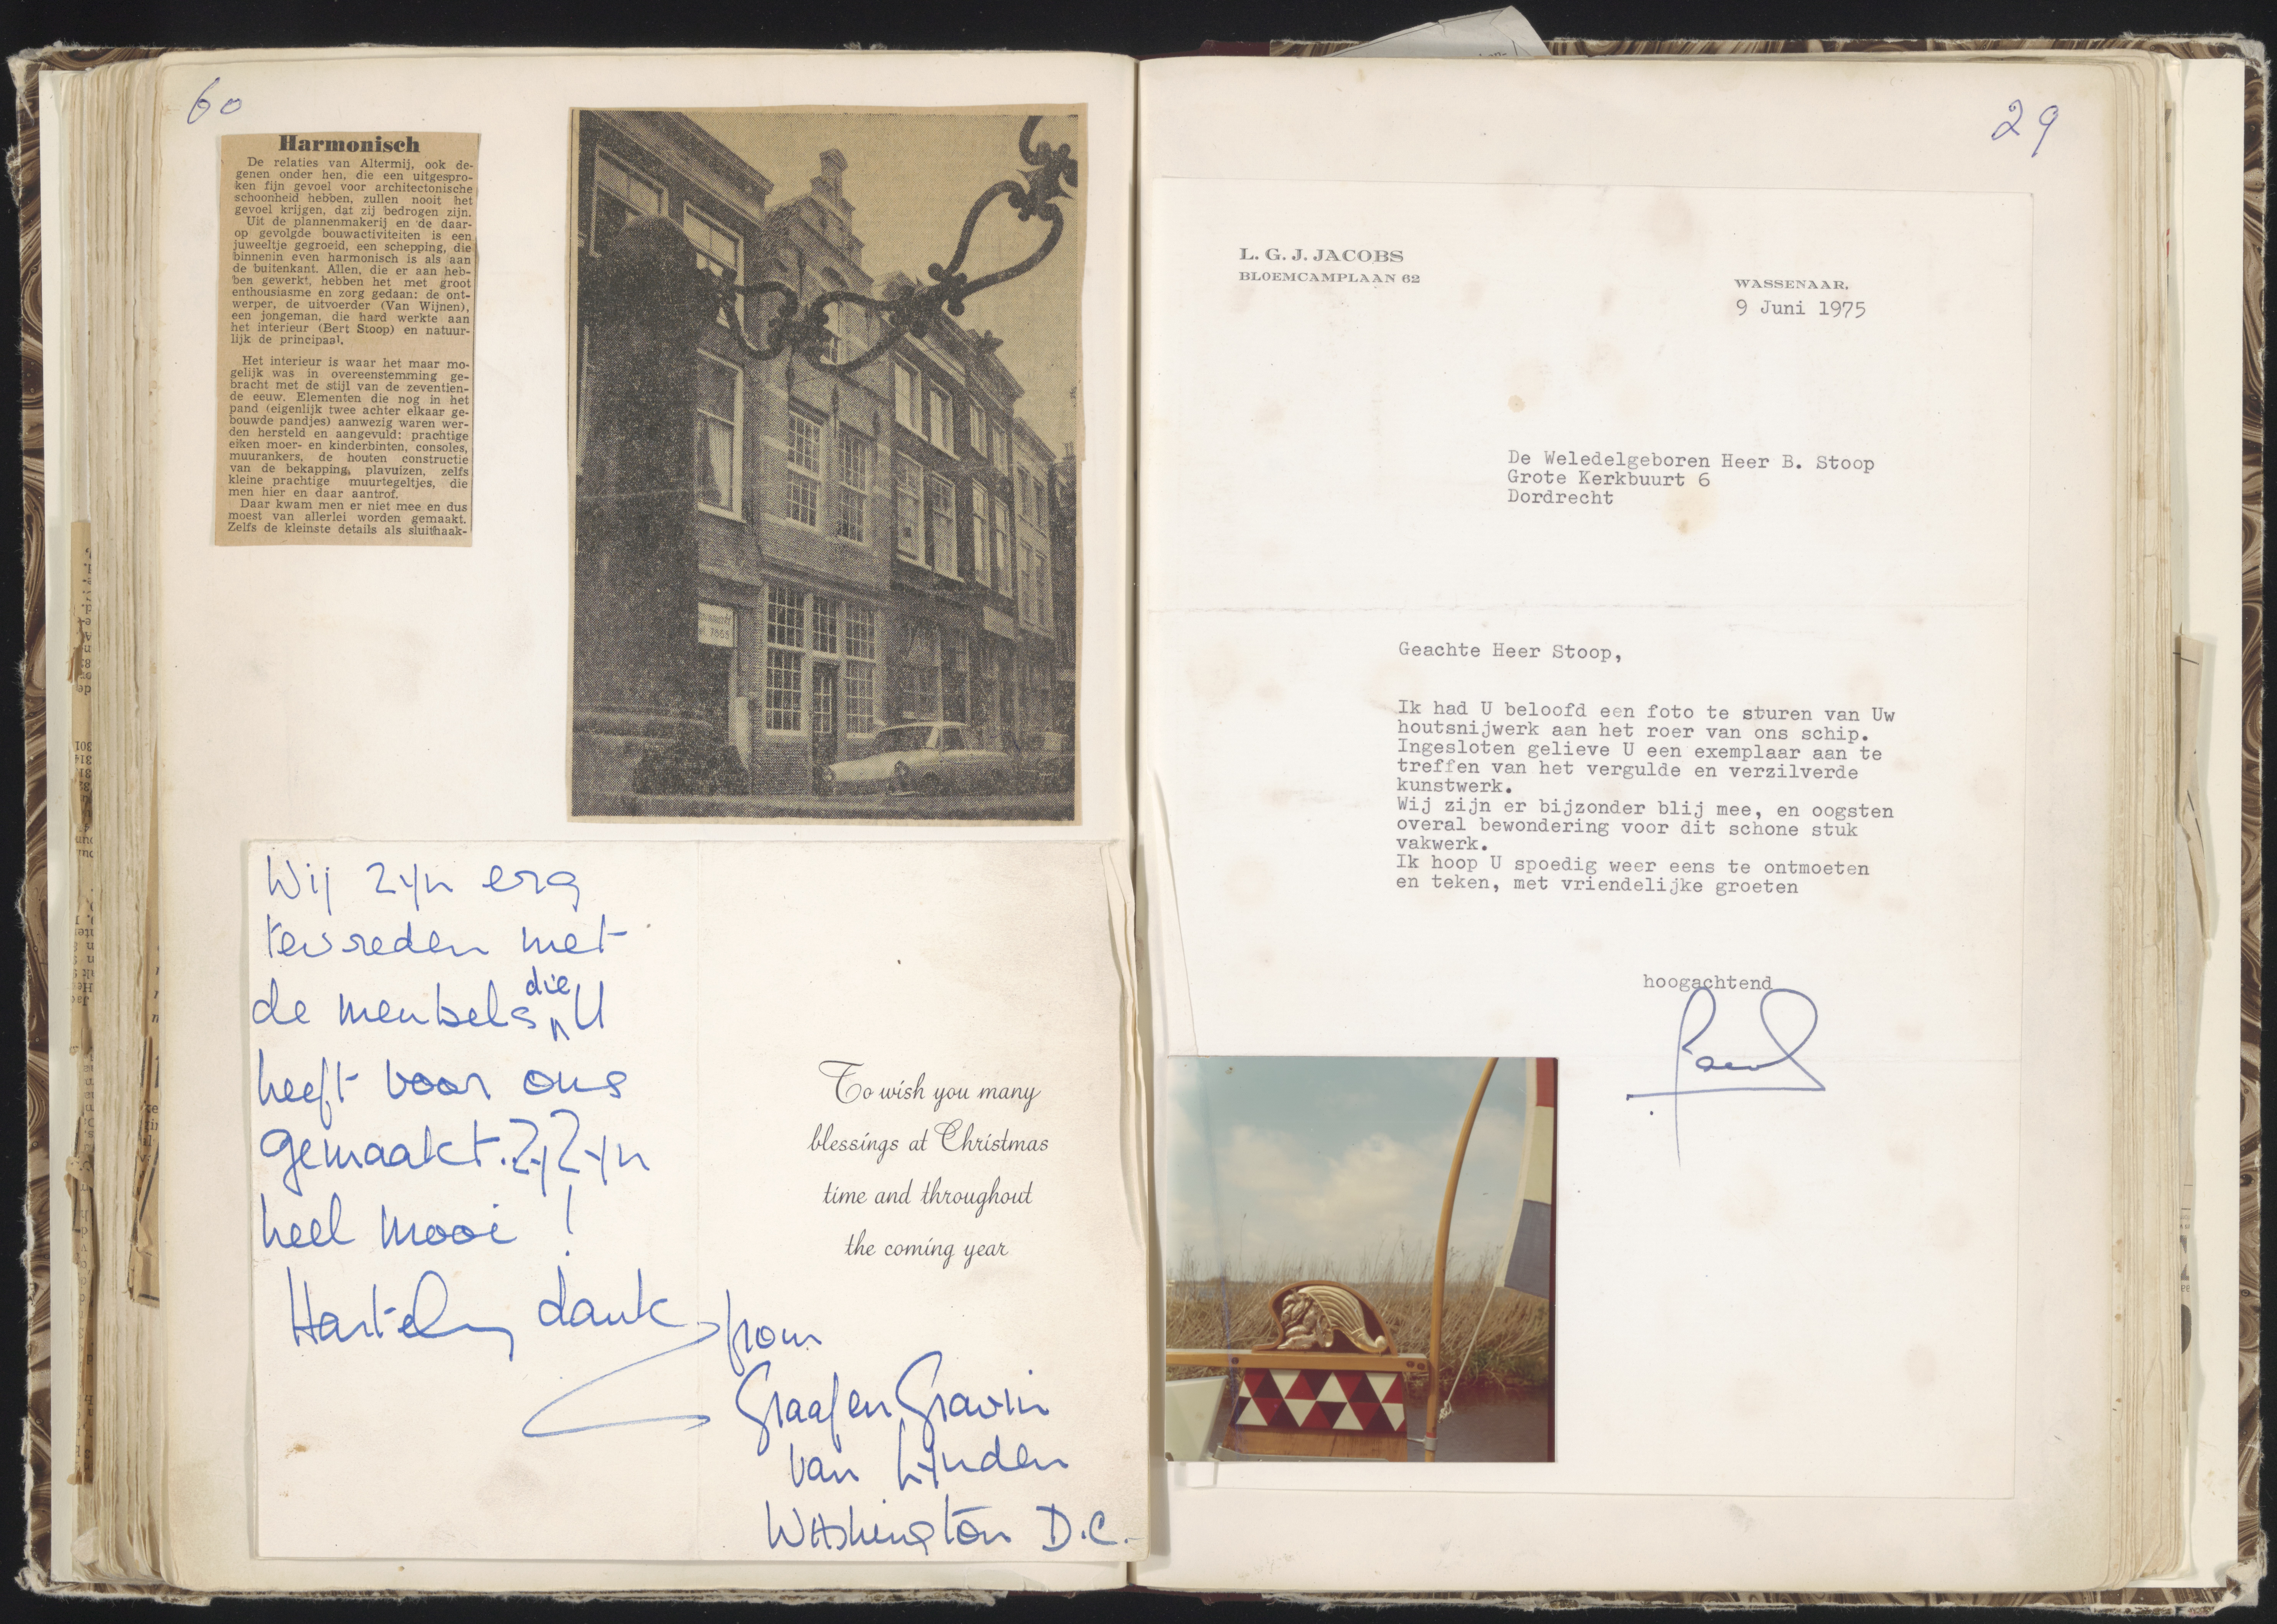 60
Harmonisch
De relaties van Altermij, ook de-
genen onder hen, die een uitgespro-
ken fijn gevoel voor architectonische
schoonheid hebben, zullen nooit het
gevoel krijgen, dat zij bedrogen zijn.
Uit de plannenmakerij en de daar-
op gevolgde bouwactiviteiten is een
juweeltje gegroeid, een schepping, die
binnenin even harmonisch is als aan
de buitenkant. Allen, die er aan heb-
ben gewerkt, hebben het met groot
enthousiasme en zorg gedaan: de ont-
werper, de uitvoerder (Van Wijnen),
een jongeman, die hard werkte aan
het interieur (Bert Stoop) en natuur-
lijk de principaal.
Het interieur is waar het maar mo-
gelijk was in overeenstemming ge-
bracht met de stijl van de zeventien-
de eeuw. Elementen die nog in het
pand (eigenlijk twee achter elkaar ge-
bouwde pandjes) aanwezig waren wer-
den hersteld en aangevuld: prachtige
eiken moer- en kinderbinten, consoles,
muurankers, de houten constructie
van de bekapping, plavuizen, zelfs
kleine prachtige muurtegeltjes, die
men hier en daar aantrof.
Daar kwam men er niet mee en dus
moest van allerlei worden gemaakt.
Zelfs de kleinste details als sluithaak-
Wij zijn erg
tevreden met
de meubels die U
heeft voor ons
gemaakt. Zij zijn
heel mooi !
Hartelijk dank
To wish you many
blessings at Christmas
time and throughout
the coming year
from
Graaf en Gravin
van Lynden
Washington D.C.
29
L. G. J. JACOBS
BLOEMCAMPLAAN 62
WASSENAAR,
9 Juni 1975
De Weledelgeboren Heer B. Stoop
Grote Kerkbuurt 6
Dordrecht
Geachte Heer Stoop,
Ik had U beloofd een foto te sturen van Uw
houtsnijwerk aan het roer van ons schip.
Ingesloten gelieve U een exemplaar aan te
treffen van het vergulde en verzilverde
kunstwerk.
Wij zijn er bijzonder blij mee, en oogsten
overal bewondering voor dit schone stuk
vakwerk.
Ik hoop U spoedig weer eens te ontmoeten
en teken, met vriendelijke groeten
hoogachtend